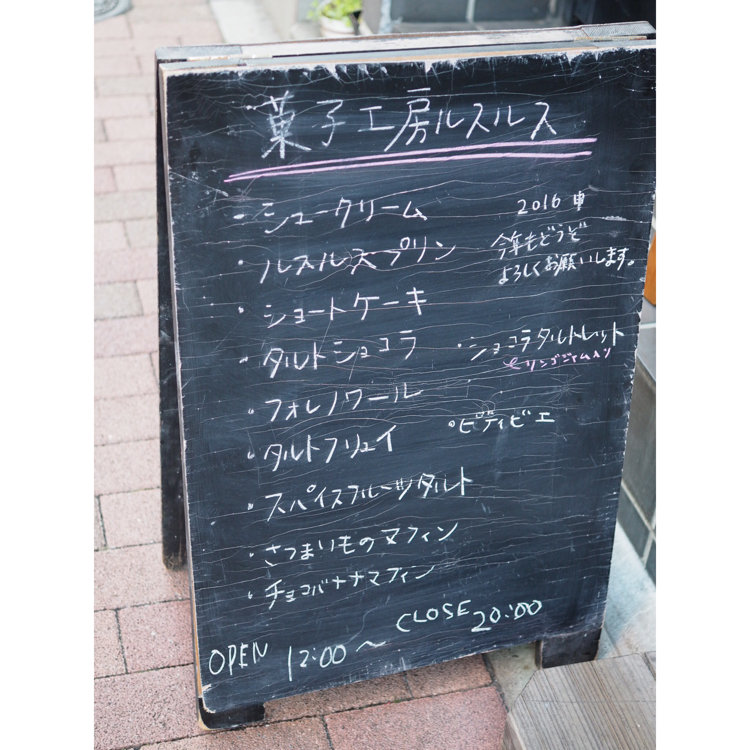 菓子工房ルスルス
・シュークリーム
・ルスルスプリン
・ショートケーキ
・タルトショコラ
・フォレノワール
・タルトフリュイ
・スパイスフルーツタルト
・さつまいものマフィン
・チョコバナナマフィン
2016 申
今年もどうぞ
よろしくお願いします。
・ショコラタルトレット
リンゴジャム入り
OPEN 12:00〜 CLOSE 20:00